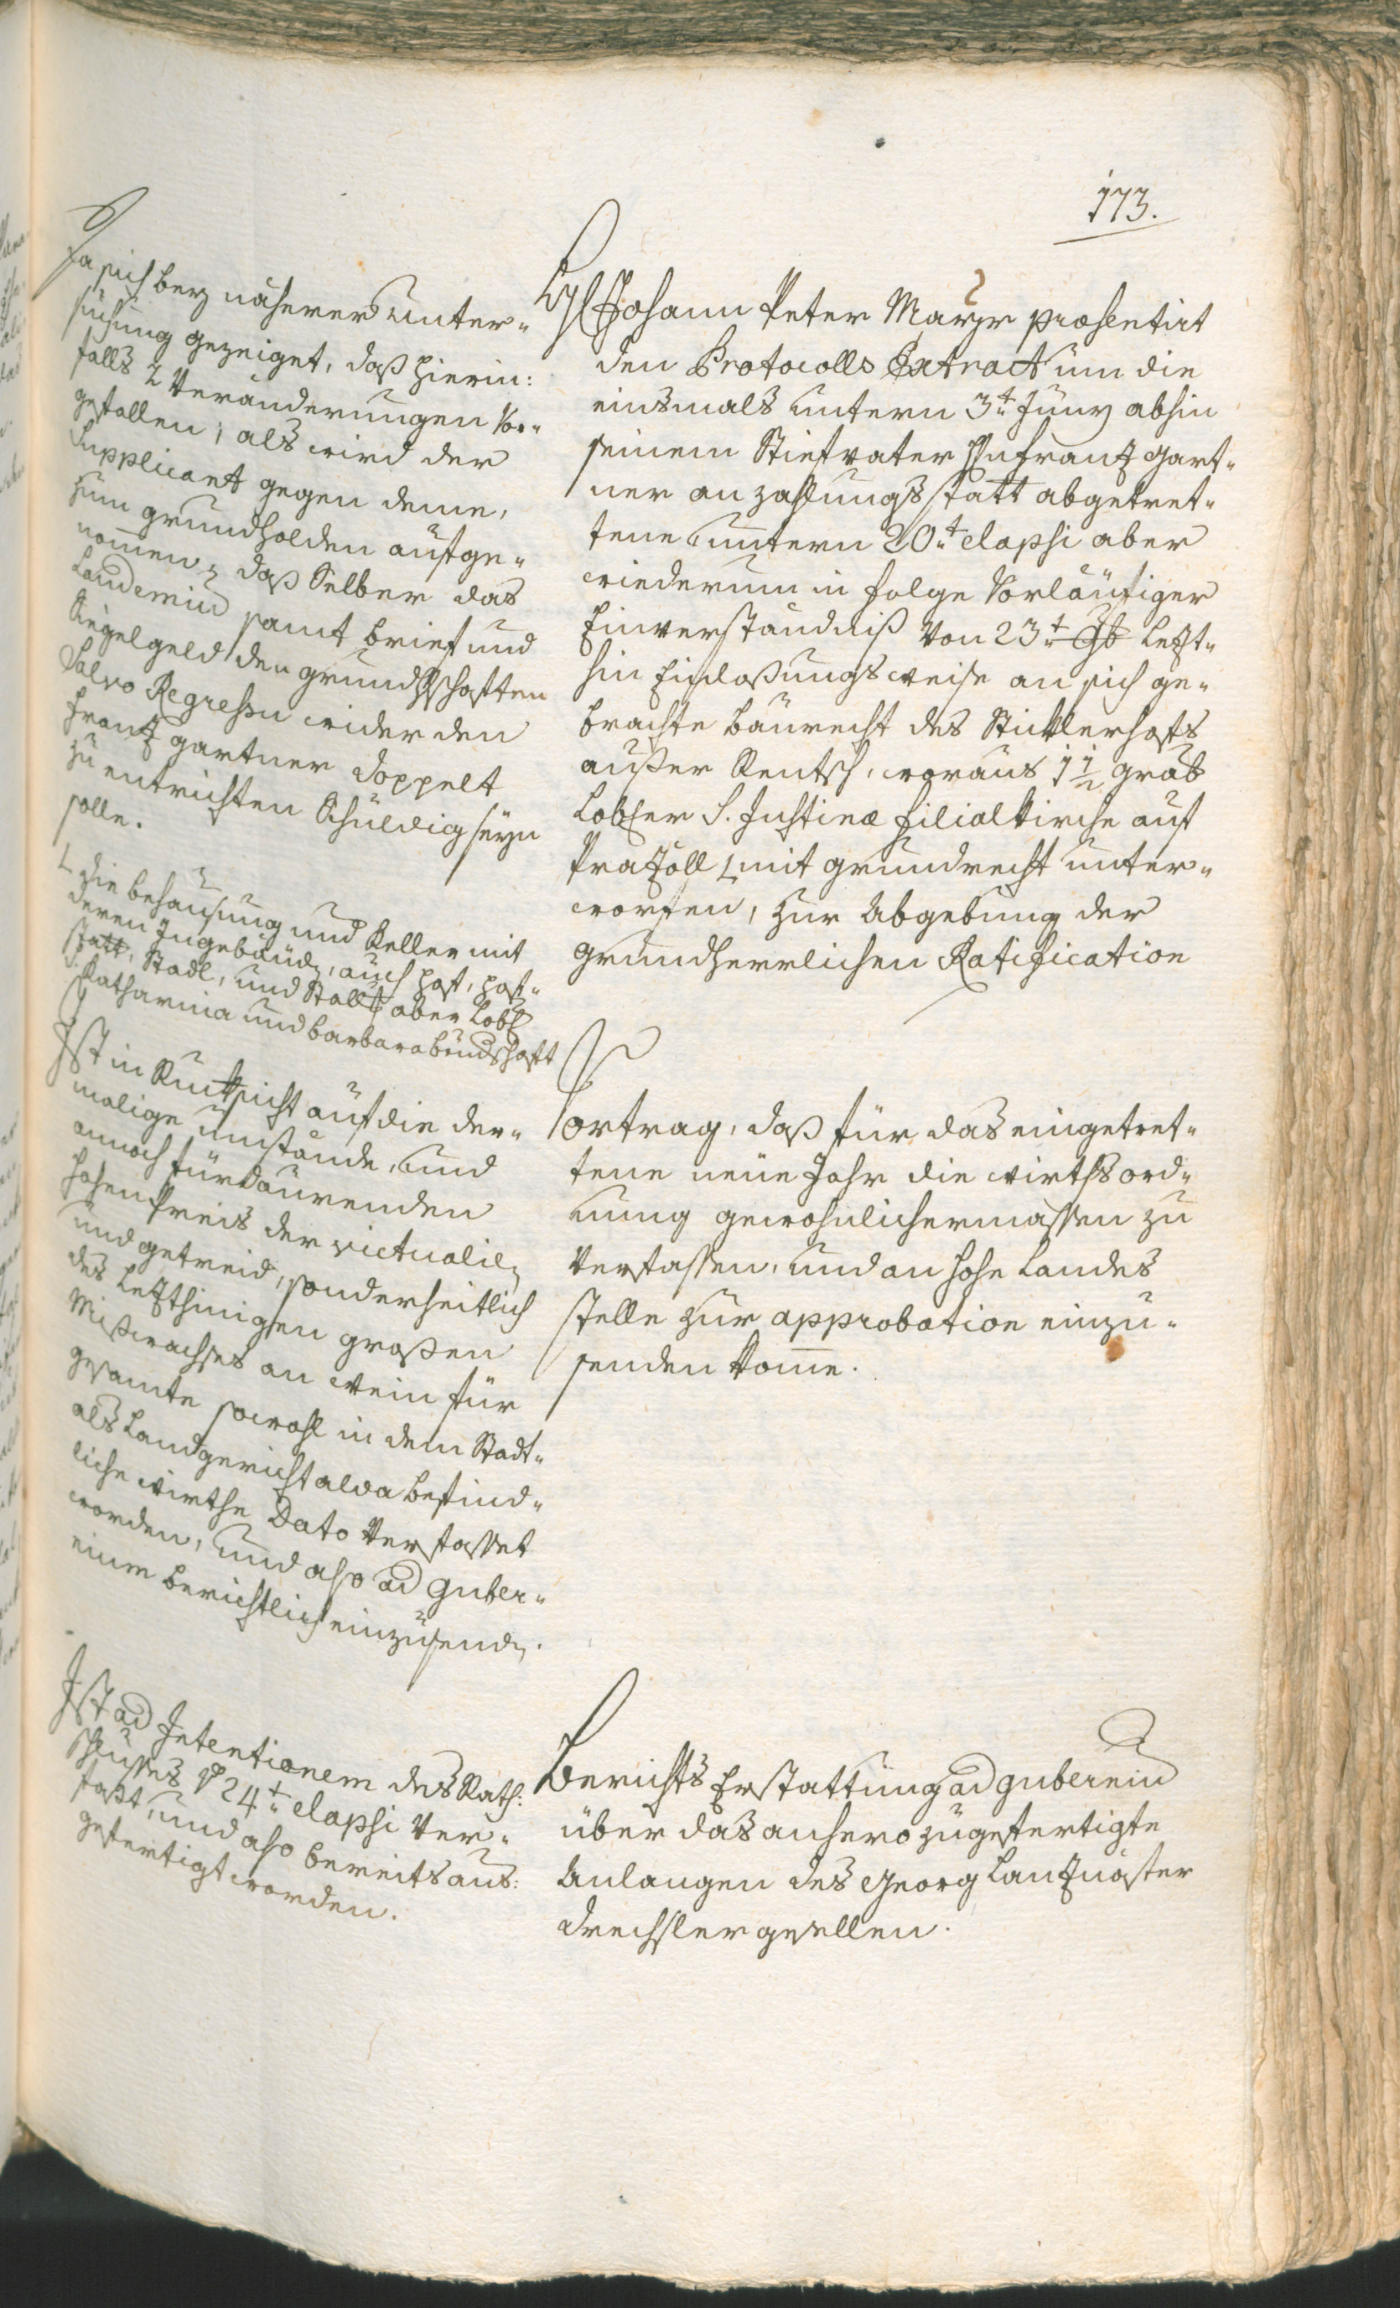 173.
Da sich bey näherer Unter-
suchung gezeiget, daß hierin:
falls 2 Veränderungen vor-
gefallen; als wird der
Supplicant gegen deme,
zum grundholden aufge-
nommen, daß Selber das
Laudemium samt brief und
Sigelgeld den grundhschaften
Salvo Regressu wider den
Frantz gartner doppelt
zu entrichten Schuldig seyn
solle.
L die behausung und Keller mit
deren Zugebäud, auch hof, hof-
statt, Stadl, und Stall aber Lobl
S. Katharina und barbara bruds:haft
Ist in Rucksicht auf die der-
malige umstände, und
annoch fürdaurenden
hohen Preis der victualien
und getreid, sonderheitlich
des letzthinigen großen
Mißwachses an wein für
gesamte sowohl in dem Stadt-
als Landgericht alda befind-
liche wirthe Dato verfasset
worden, und also ad guber-
nium berichtlich einzusenden.
Ist ad Intentionem des Rath:
schlusses de 24t elapsi ver-
faßt, und also bereits aus:
gefertigt worden.
H Johann Peter Mayr præsentirt
den Protocolls Extract um die
einsmals untern 3t Juny abhin
seinem Stiefvater Hn Frantz Gart-
ner an zahlungsstatt abgetret-
tene untern 20t elapsi aber
wiederum in folge Vorläufiger
Einverständniß von 23t letzt-
hin Einlaßungs weise an sich ge-
brachte baurecht des Sticklerhofs
außer Rentsch, woraus 1 1/2 grab
Lobl er S. Justinæ filialkirche auf
Pratzöll L mit grundrecht unter-
worfen, zur Abgebung der
grundherrlichen Ratification
Vortrag, daß für das eingetret-
tene neue Jahr die wirthsord-
nung gewohnlichermassen zu
verfassen, und an hohe Landes
stelle zur approbation einzu-
senden komme.
Berichts Erstattung ad gubernium
über das anhero zugefertigte
Anlangen des Georg Lantznaster
drechslergesellen.